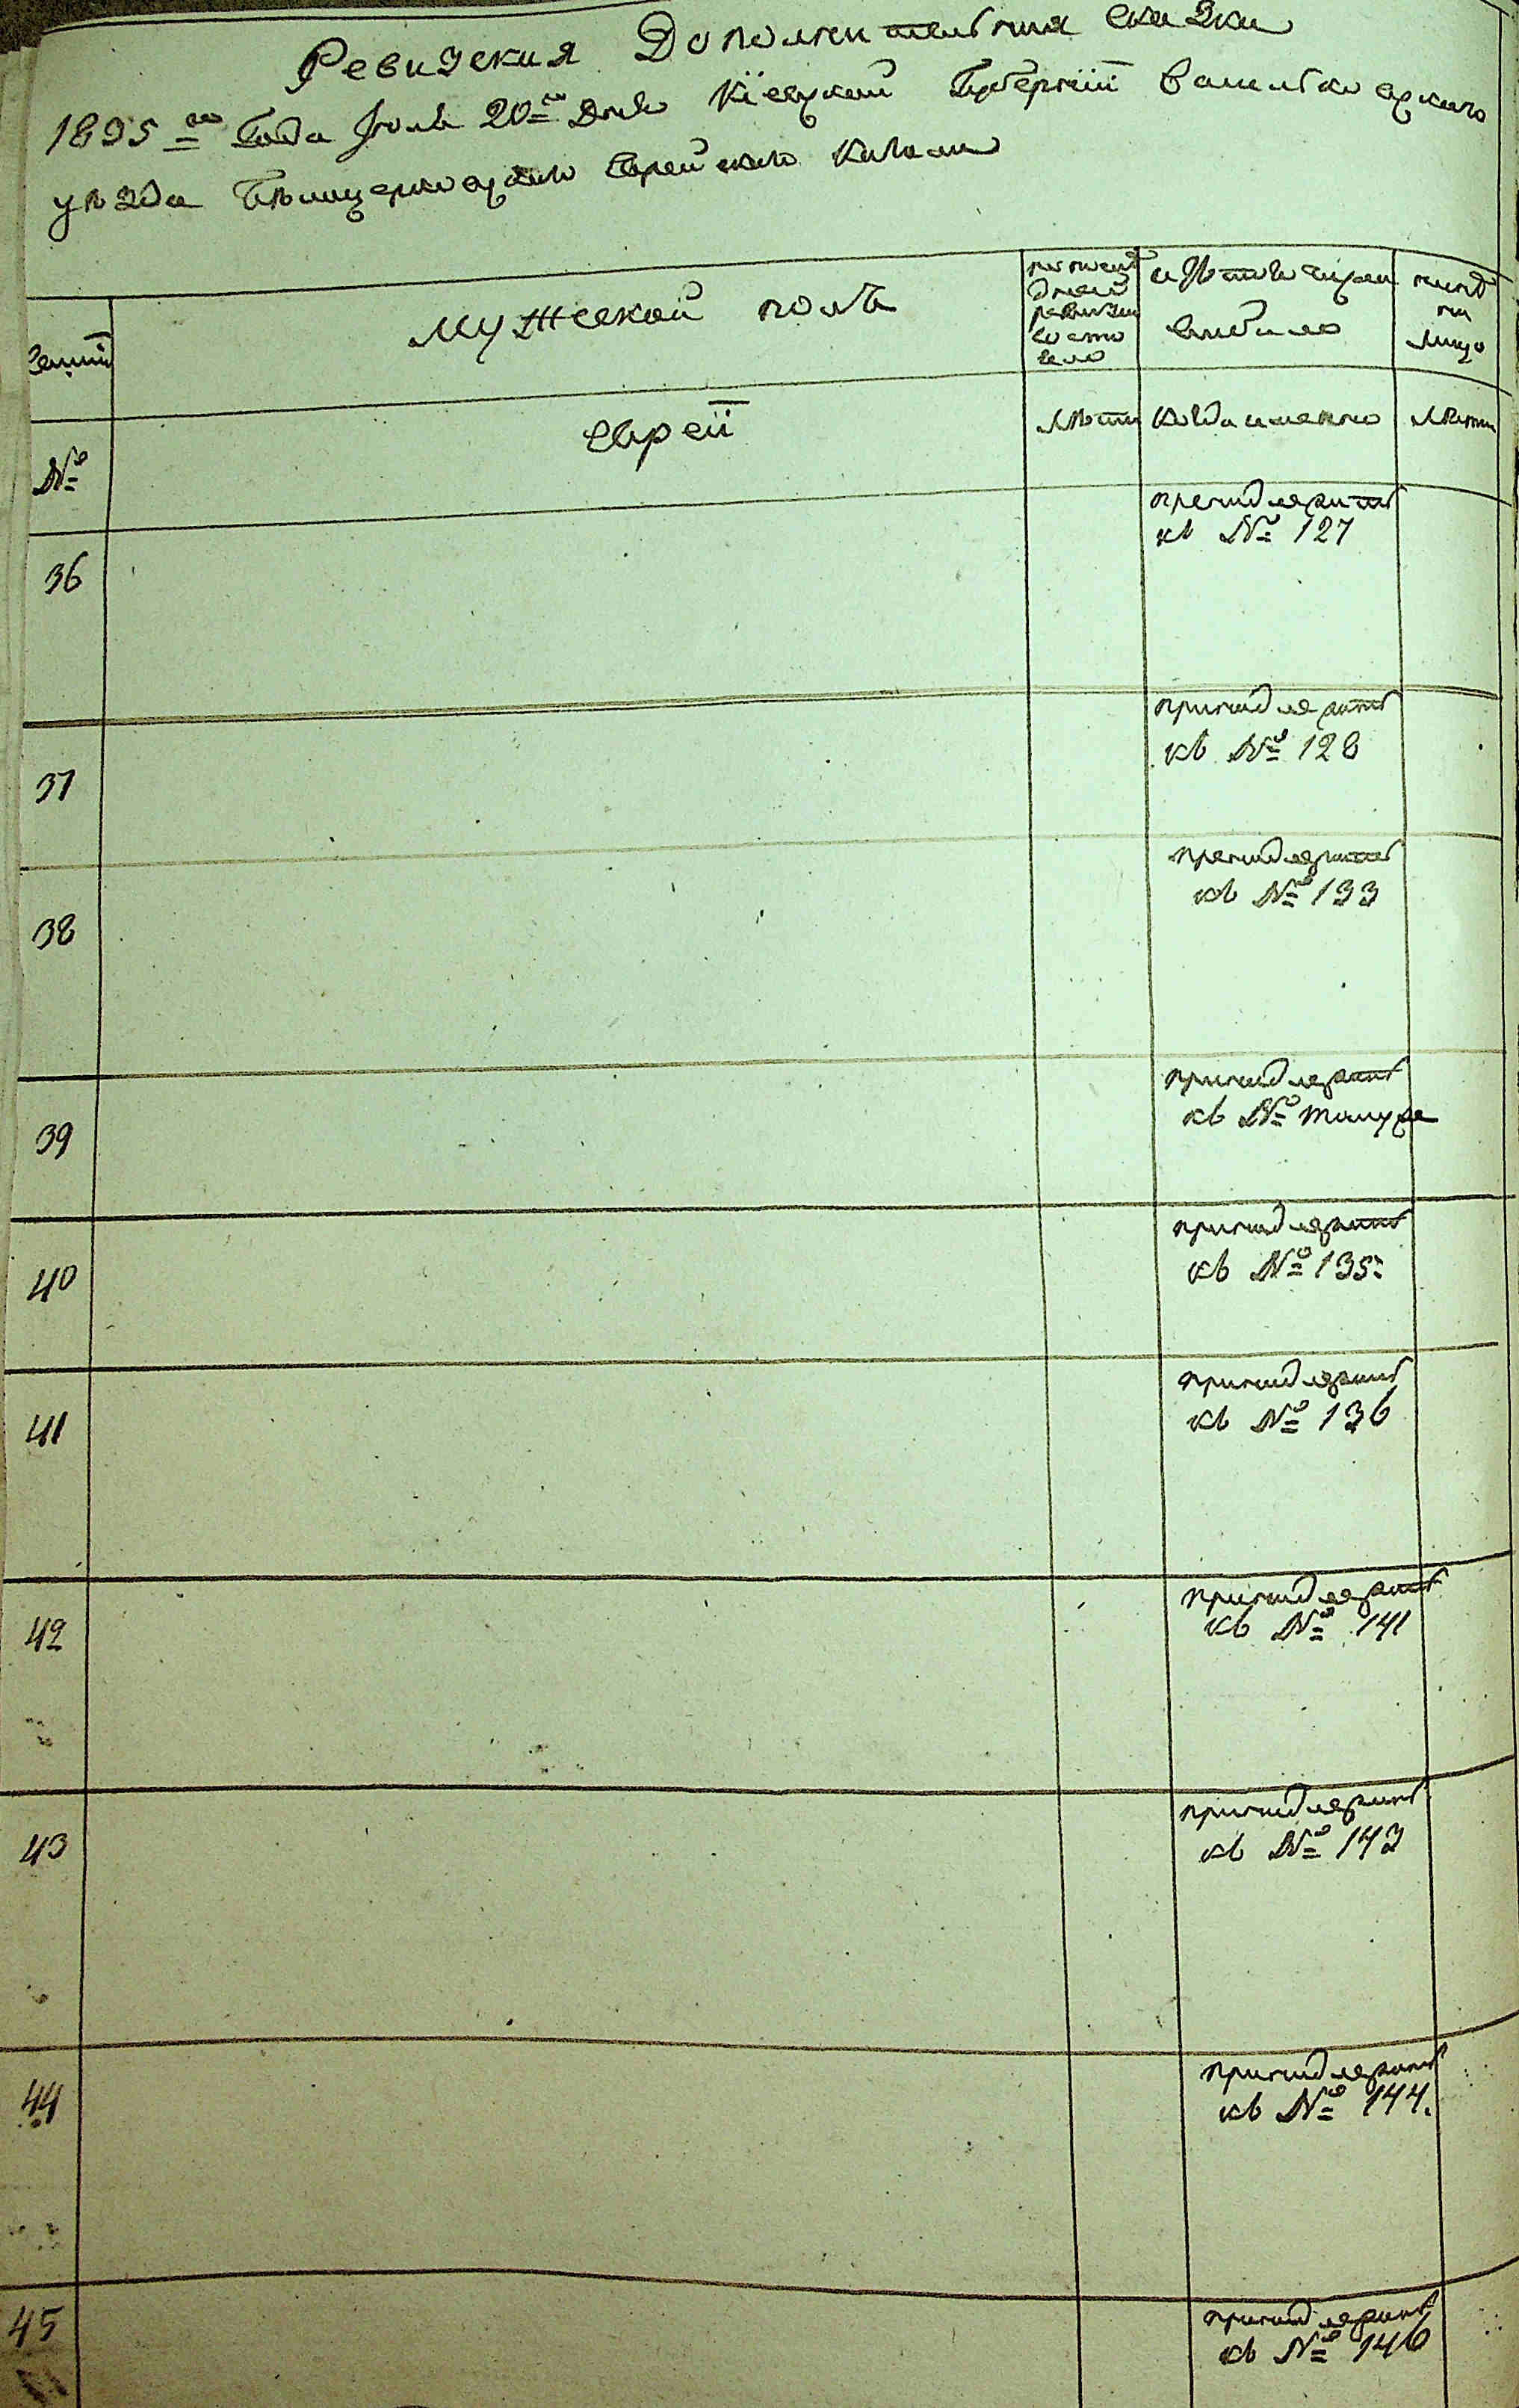 Ревизския Дополнительныя сказки
1835 го Года Июля 20 го Дня Кіевской Губерніи Васильковского
уезда Белоцерковского Еврейского Кагала
Семий
мужеской полъ
по последней ревизии состояло
изъ того числа выбыло
ныне на лицо
№
евреи
лета
когда именно
лета
36
принадлежитъ
къ № 127
37
принадлежитъ
къ № 128
38
принадлежитъ
къ № 133
39
принадлежитъ
къ №
40
принадлежитъ
къ № 135
41
принадлежитъ
къ № 136
42
принадлежитъ
къ № 141
43
принадлежитъ
къ № 143
44
принадлежитъ
къ № 144.
45
принадлежитъ
къ № 146